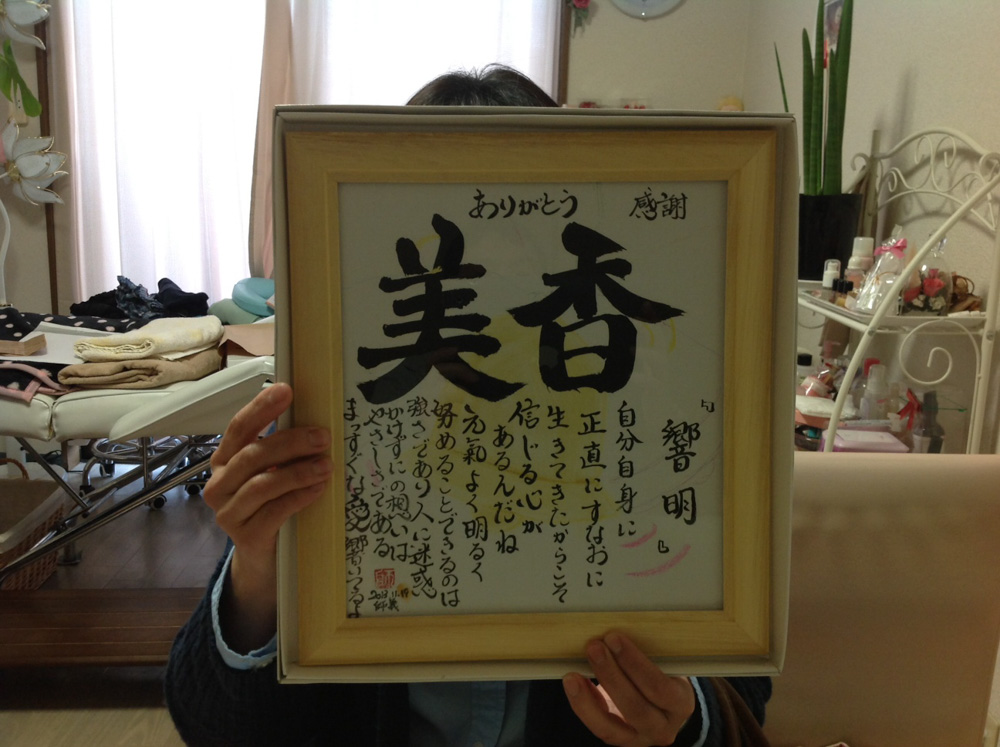 ありがとう　感謝
美香
『響明』
自分自身に
正直にすなおに
生きてきたからこそ
信じる心が
あるんだね
元氣よく明るく
努めることできるのは
強さであり人に迷惑
かけずにの想いは
やさしさである
まっすぐな愛響いてるよ
2013.11.19